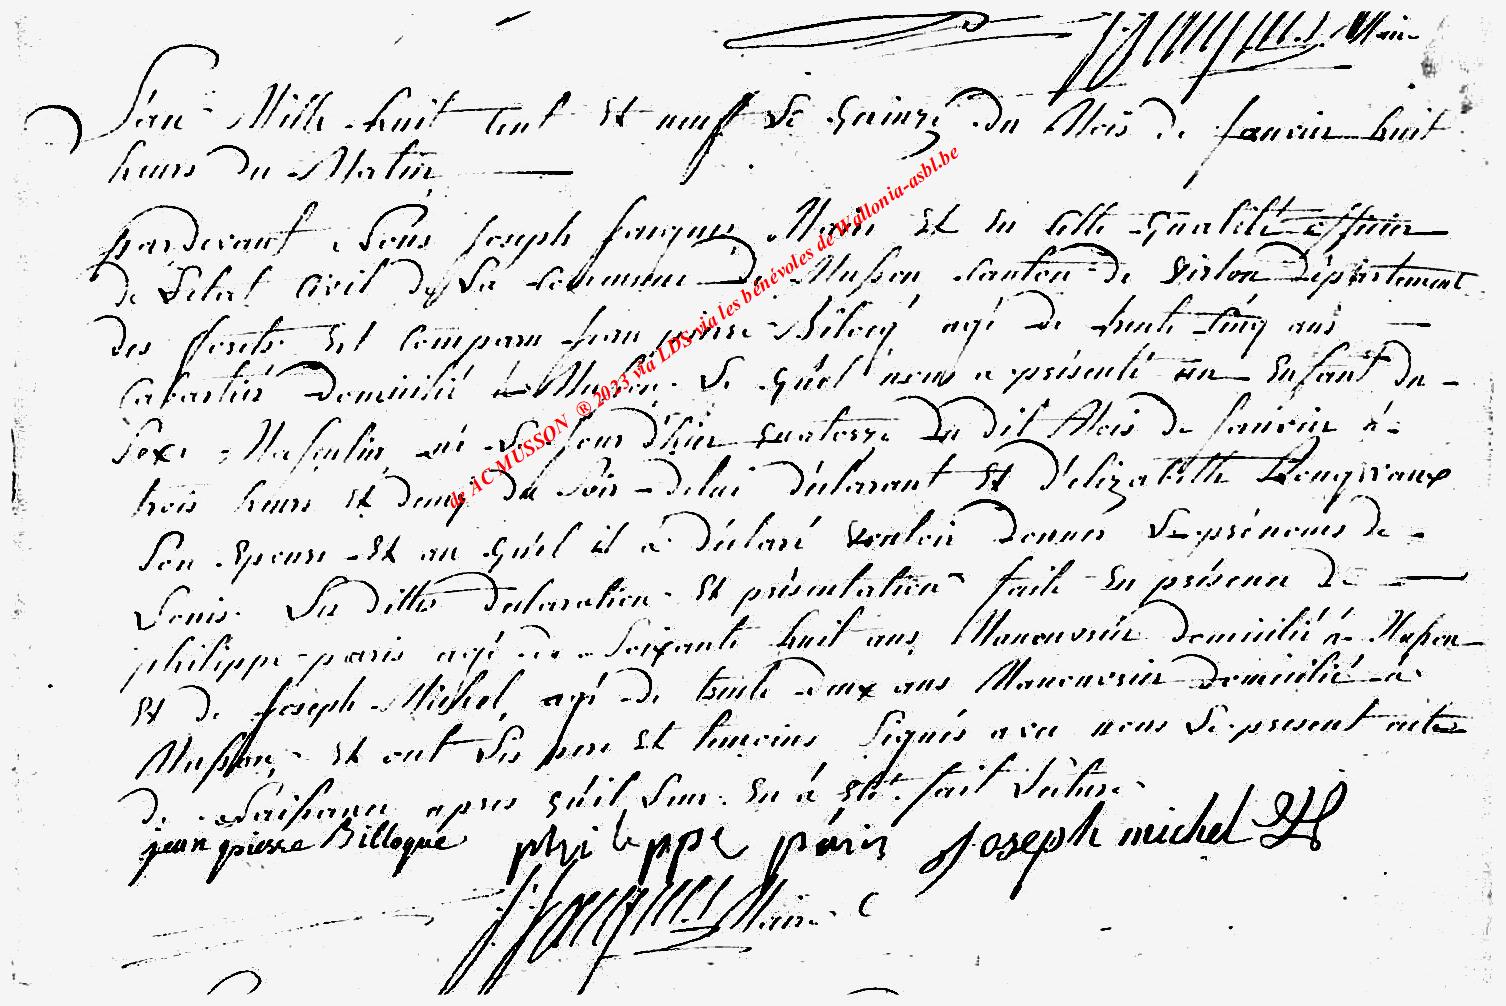 J. Jacques Maire
L'an Mille huit Cent Et neuf Le Quinze du Mois de Janvier huit
heures du Matin
pardevant Nous Joseph Jacques Maire Et En Cette Qualité officier
de Létat Civil de La Commune de Musson Canton de Virton département
des forets Est Comparu Jean pierre Bilocq agé de trente Cinq ans
Cabartier domicilié à Musson. Le Quel nous a présenté un Enfant du
Sexe Masculin né Le Jour d'hier Quatorze du dit Mois de Janvier à
trois heures Et demy du Soir de lui déclarant Et d'Elizabette
Son Epouse Et au Quel il a déclaré vouloir donner Le prénoms de
Louis. Les dittes declaration Et présentation faite En présence de
philippe paris agé de Soixante huit ans Manouvrier domicilié à Musson
Et de Joseph Michel, agé de trente deux ans Manouvrier domicilié à
Musson, Et ont Les pere Et temoins Signés avec nous Le present acte
de Naissance apres Qu'il Leur En à Eté fait Lecture
jean pierre Billoque philippe páris Joseph michel
J. Jacques Maire
de AC MUSSON ® 2023 via LDS via les bénévoles de Wallonia-asbl.be